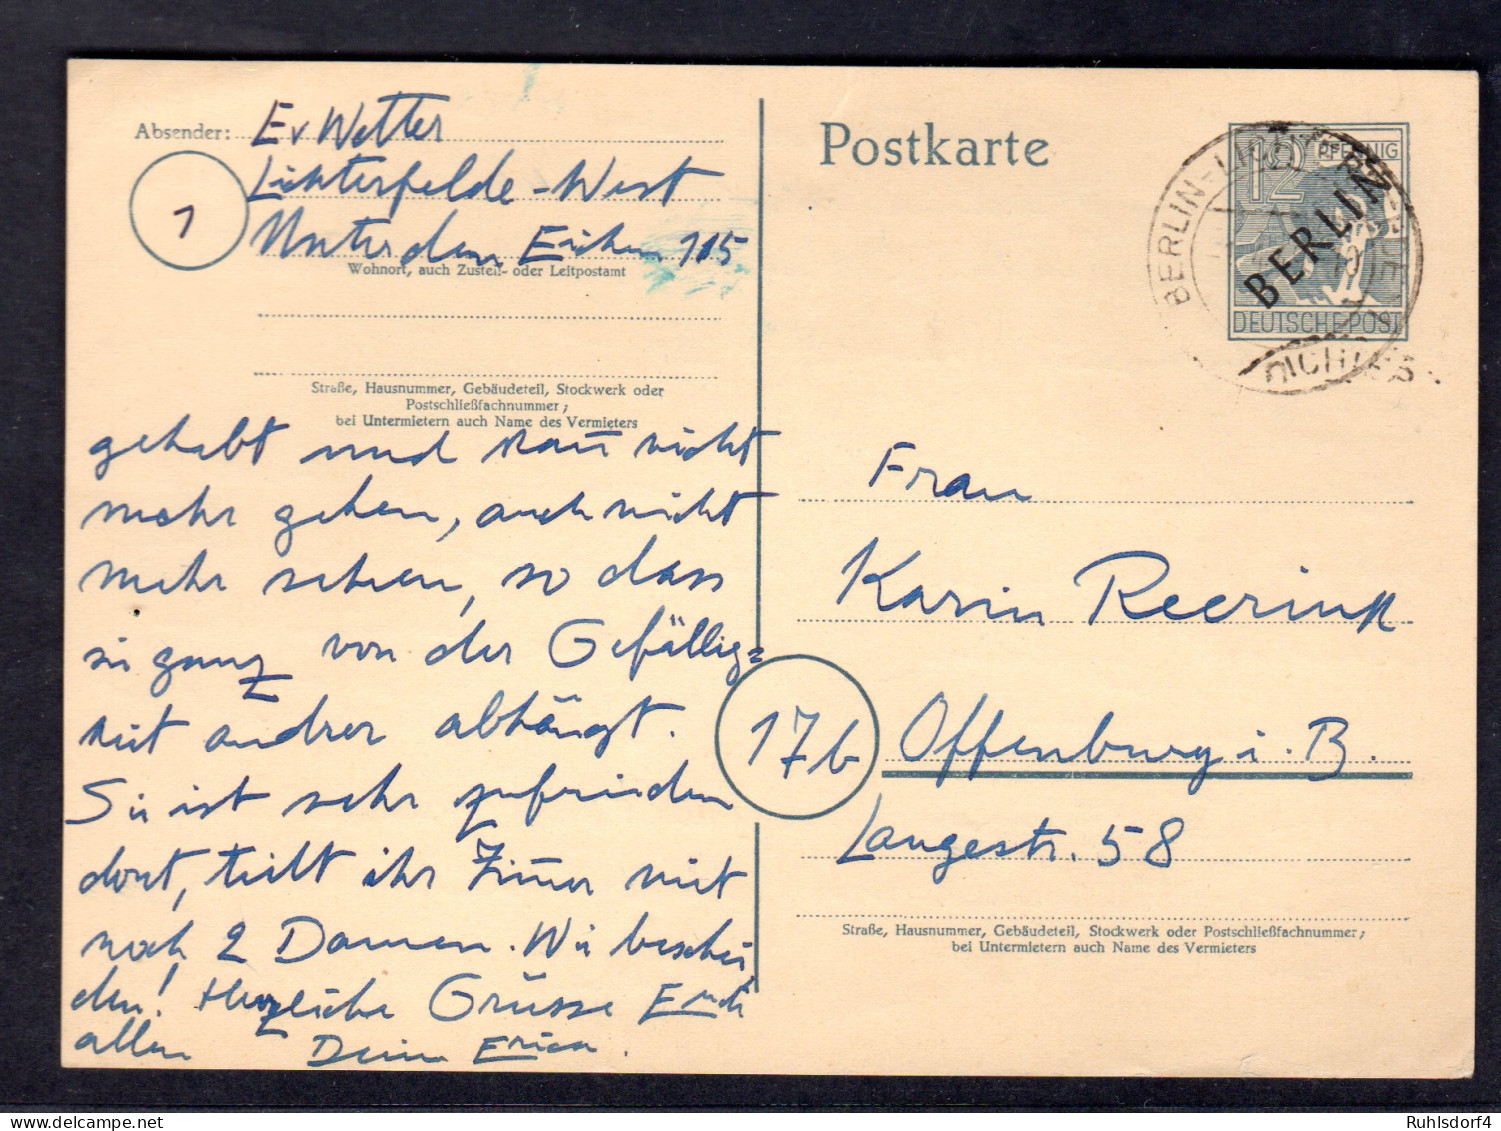 Absender: E v Wetter
1
Lichterfelde-West
Unter den Eichen 115
Wohnort, auch Zustell- oder Leitpostamt
Straße, Hausnummer, Gebäudeteil, Stockwerk oder
Postschließfachnummer;
bei Untermietern auch Name des Vermieters
gehabt und kan̄ nicht
mehr gehen, auch nicht
mehr sehen, so dass
sie ganz von der Gefällig=
keit andrer abhängt.
Sie ist sehr zufrieden
dort, teilt ihr Zim̄er mit
noch 2 Damen. Wie beschei
den! Herzliche Grüsse Euch
allen Deine Erica.
Postkarte
12 PFENNIG
BERLIN
DEUTSCHE POST
BERLIN-LICHTERFELDE
Frau
Karin Reerink
17b Offenburg i. B.
Langestr. 58
Straße, Hausnummer, Gebäudeteil, Stockwerk oder Postschließfachnummer;
bei Untermietern auch Name des Vermieters
Ruhlsdorf4